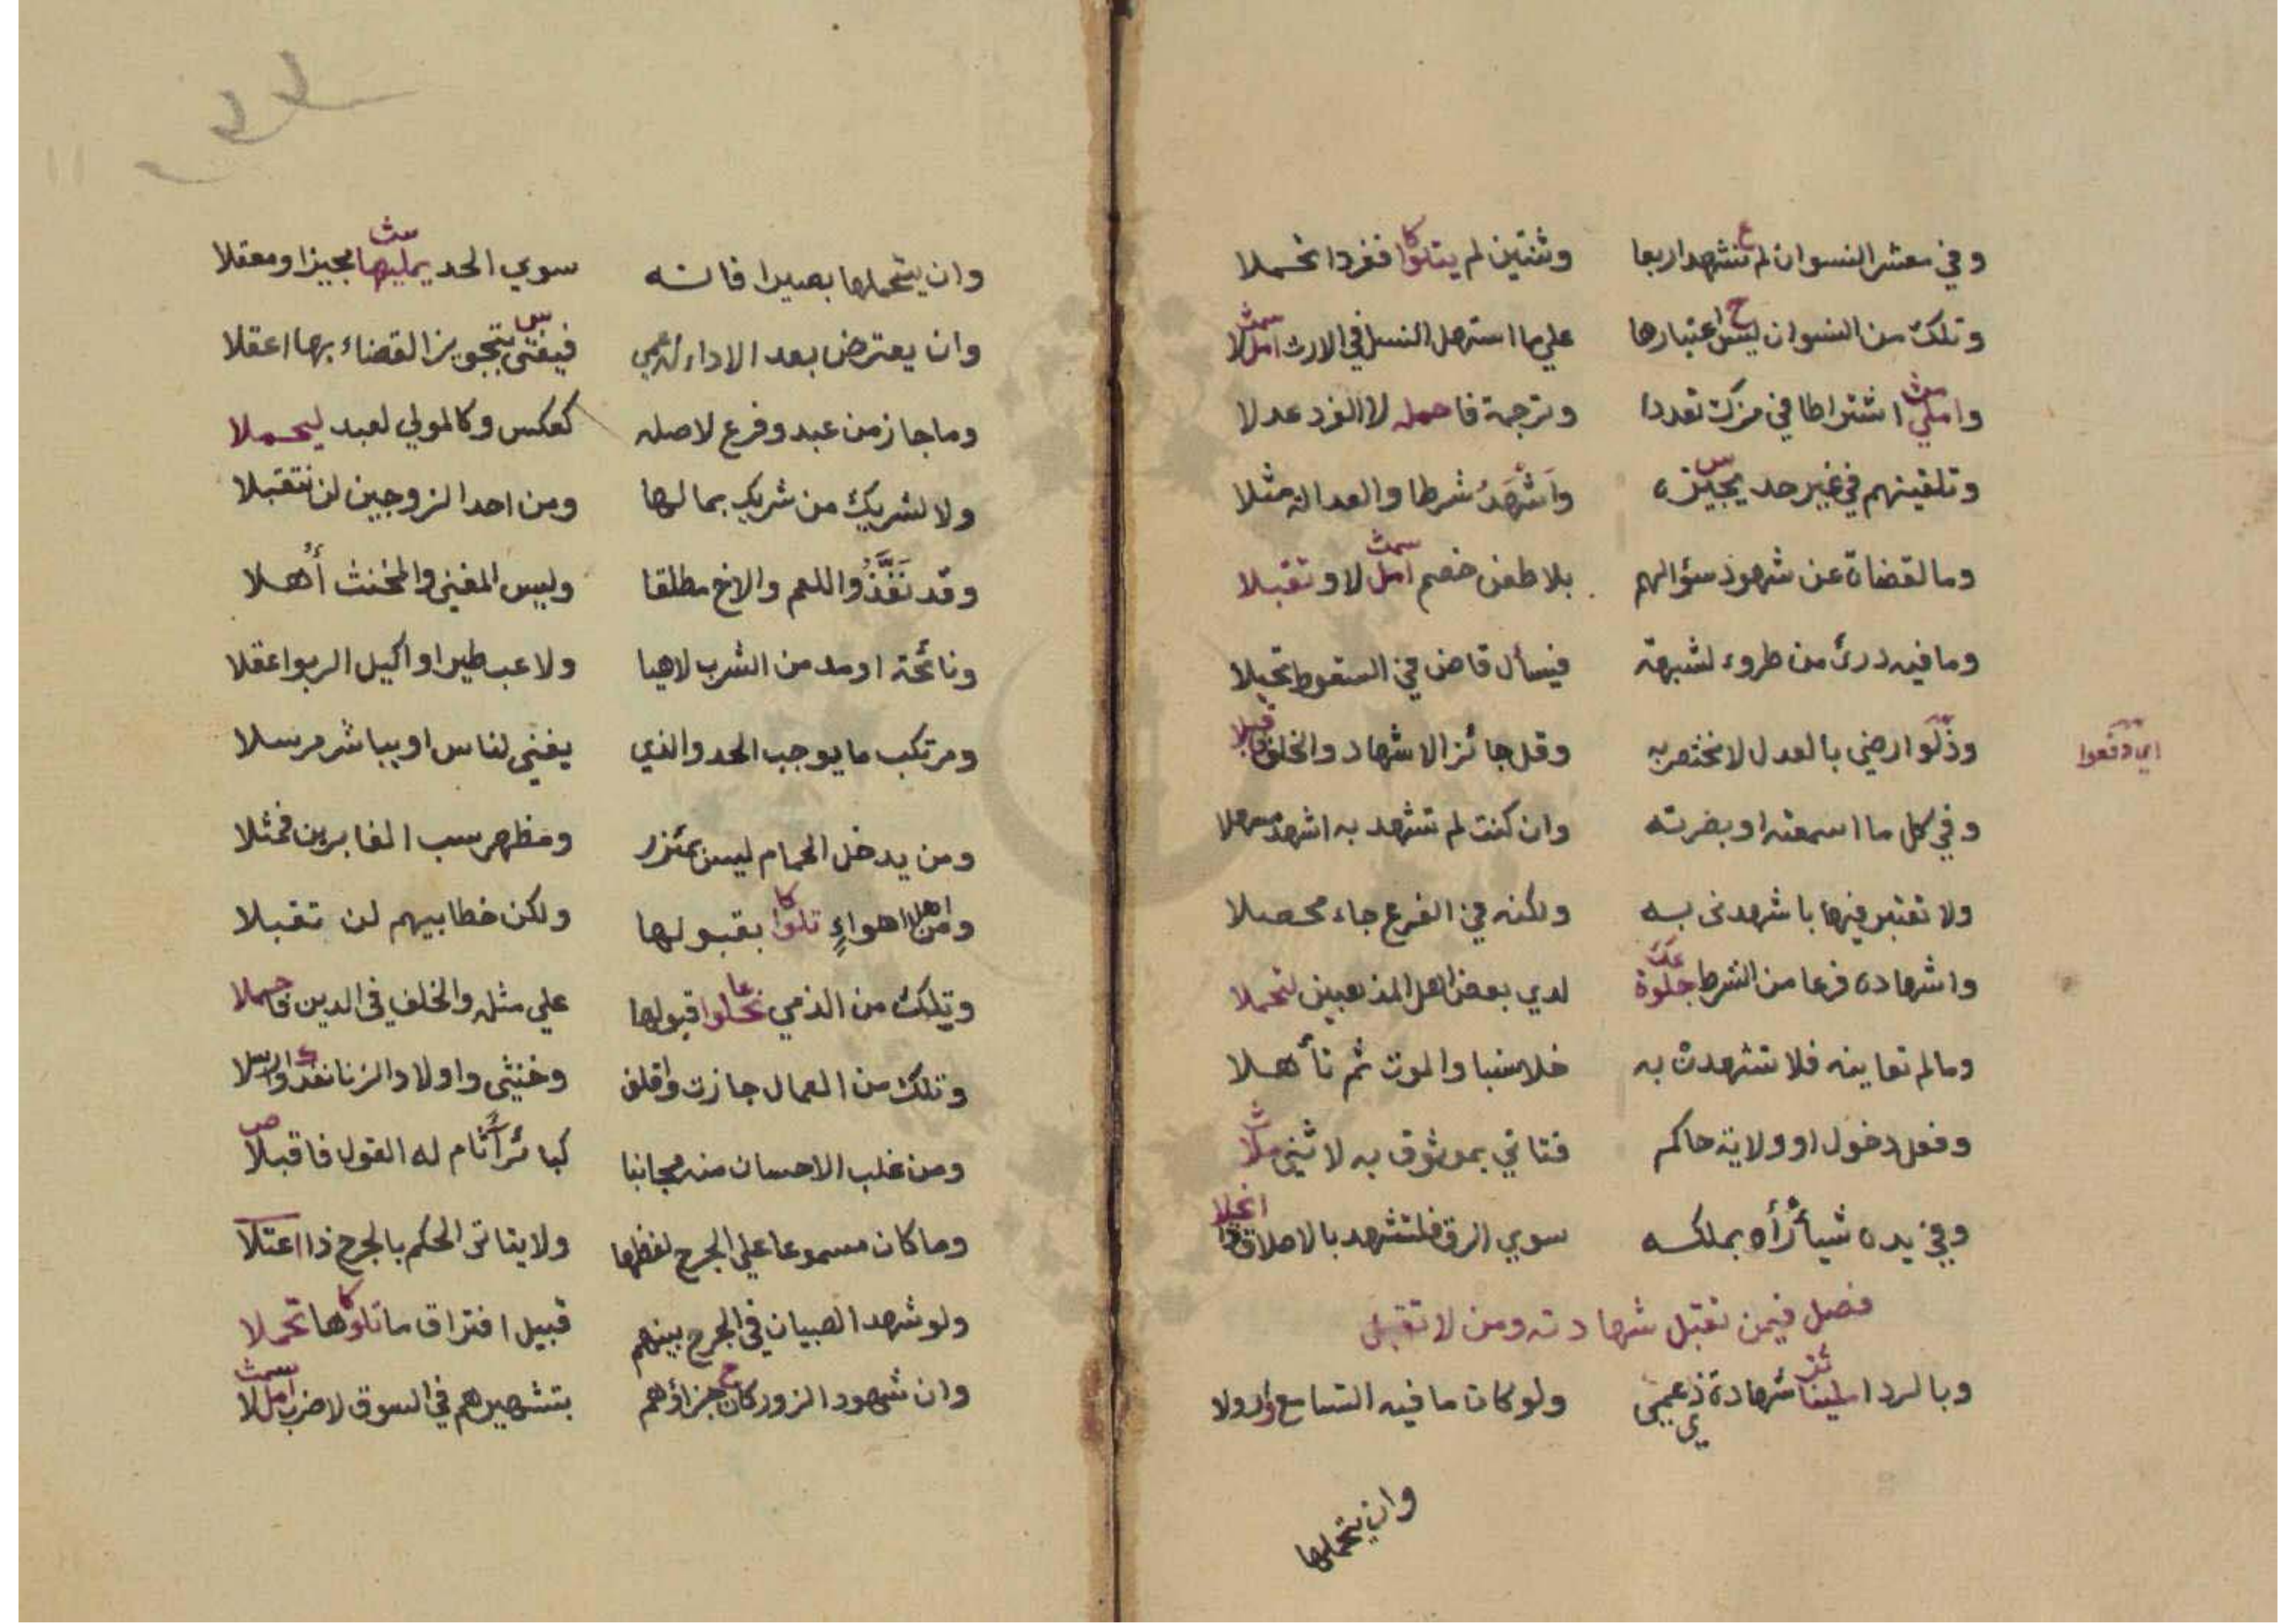 وفي معشر النسوان لم تشهد اربعا وثنتين لم يتلوا ففردا تحملا
وتلك من النسوان ليس اعتبارها علي ما استهل النسل في الارث امل لا
واملي اشتراطا في مزك تعددا وترجمة فاحمله لا الفرد عدلا
وتلقينهم في غير حد يجيزه واشهد شرطا والعدالة مثلا
وما لقضاة عن شهود سؤالهم بلا طعن خصم امل لا وتقبلا
وما فيه درئ من طروء لشبهة فيسأل قاض في السقوط تحيلا
وذلوا رضي بالعدل لا نختص به وقل جائز الاشهاد والخلف
اي دقعوا
وفي كل ما اسمعته او بضرته وان كنت لم تشهد به اشهد مسهلا
ولا تعتبر فيها با شهدني به ولكنه في الفرع جاء محصلا
واشهاده فرعا من الشرط جلوة لدي بعض اهل المذهبين لتحملا
وما لم تعاينه فلا تشهدن به خلا سببا والموت ثم تأهلا
وفعل دخول او ولاية حاكم فتاتي بموثوق به لا ثني ملا
وفي يده شيأ رأه بملكه سوي الرق فلتشهد بالاملاق
فصل فيمن تقبل شهادته ومن لا تقبل
وبالرد املينا شهادة ذي عمي ولو كان ما فيه التسامع
وان يتحملها
وان يتحملها بصيرا فانه سوي الحد يمليها مجيزا ومعقلا
وان يعترض بعد الاداء له عمي فيفتي بتجويز القضاء بها اعقلا
وما جاز من عبد وفرع لاصله كعكس وكالمولي لعبد ليحملا
ولا لشريك من شريك بما لها ومن احد الزوجين لن تتقبلا
وقد نفذوا للعم والاخ مطلقا وليس المغني والمخنث أهلا
ونائحة او مدمن الشرب لاهيا ولاعب طيرا او اكيل الربوا اعقلا
ومرتكب ما يوجب الحد والذي يغني لناس او يباشر مرسلا
ومن يدخل الحمام ليس بمئزر ومظهر سب الغابرين فمثلا
ومن اهل اهواء تلوا بقبولها ولكن خطابيهم لن تقبلا
وتلك من الذمي نحلوا قبولها علي مثله والخلف في الدين فاحملا
وتلك من العمال جازت واقلف وخنثي واولاد الزنا
ومن غلب الاحسان منه مجانبا كبائر أثام له القول فاقبلا
وما كان مسموعا علي الجرح لفظها ولا يتاتى الحكم بالجرح ذا اعتلا
ولو شهد الصبيان في الجرح بينهم قبيل افتراق ما تلوها تحملا
وان شهود الزور كان جزاؤهم بتشهيرهم في السوق لا ضرب امل لا